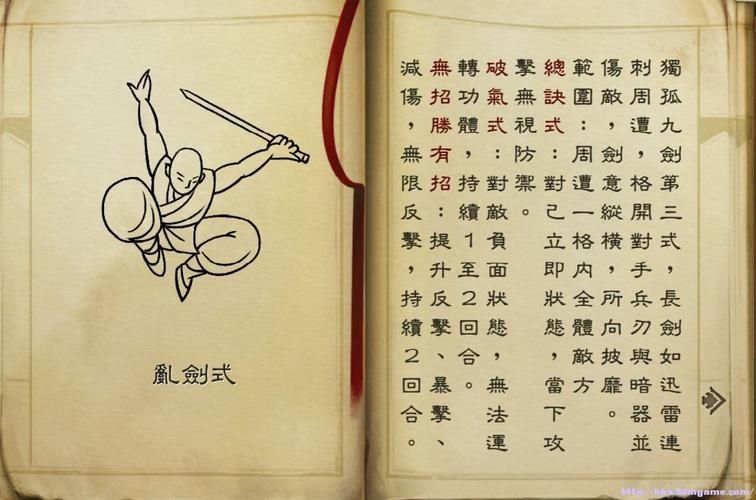 獨孤九劍第三式，長劍如迅雷連
刺周遭，格開對手兵刃與暗器並
傷敵，劍意縱橫，所向披靡。
範圍：周遭一格內全體敵方
總訣式：對己立即狀態，當下攻
擊無視防禦。
破氣式：對敵負面狀態，無法運
轉功體，持續1至2回合。
無招勝有招：提升反擊、暴擊、
減傷，無限反擊，持續2回合。
亂劍式
http://bbs.3dmgame.com